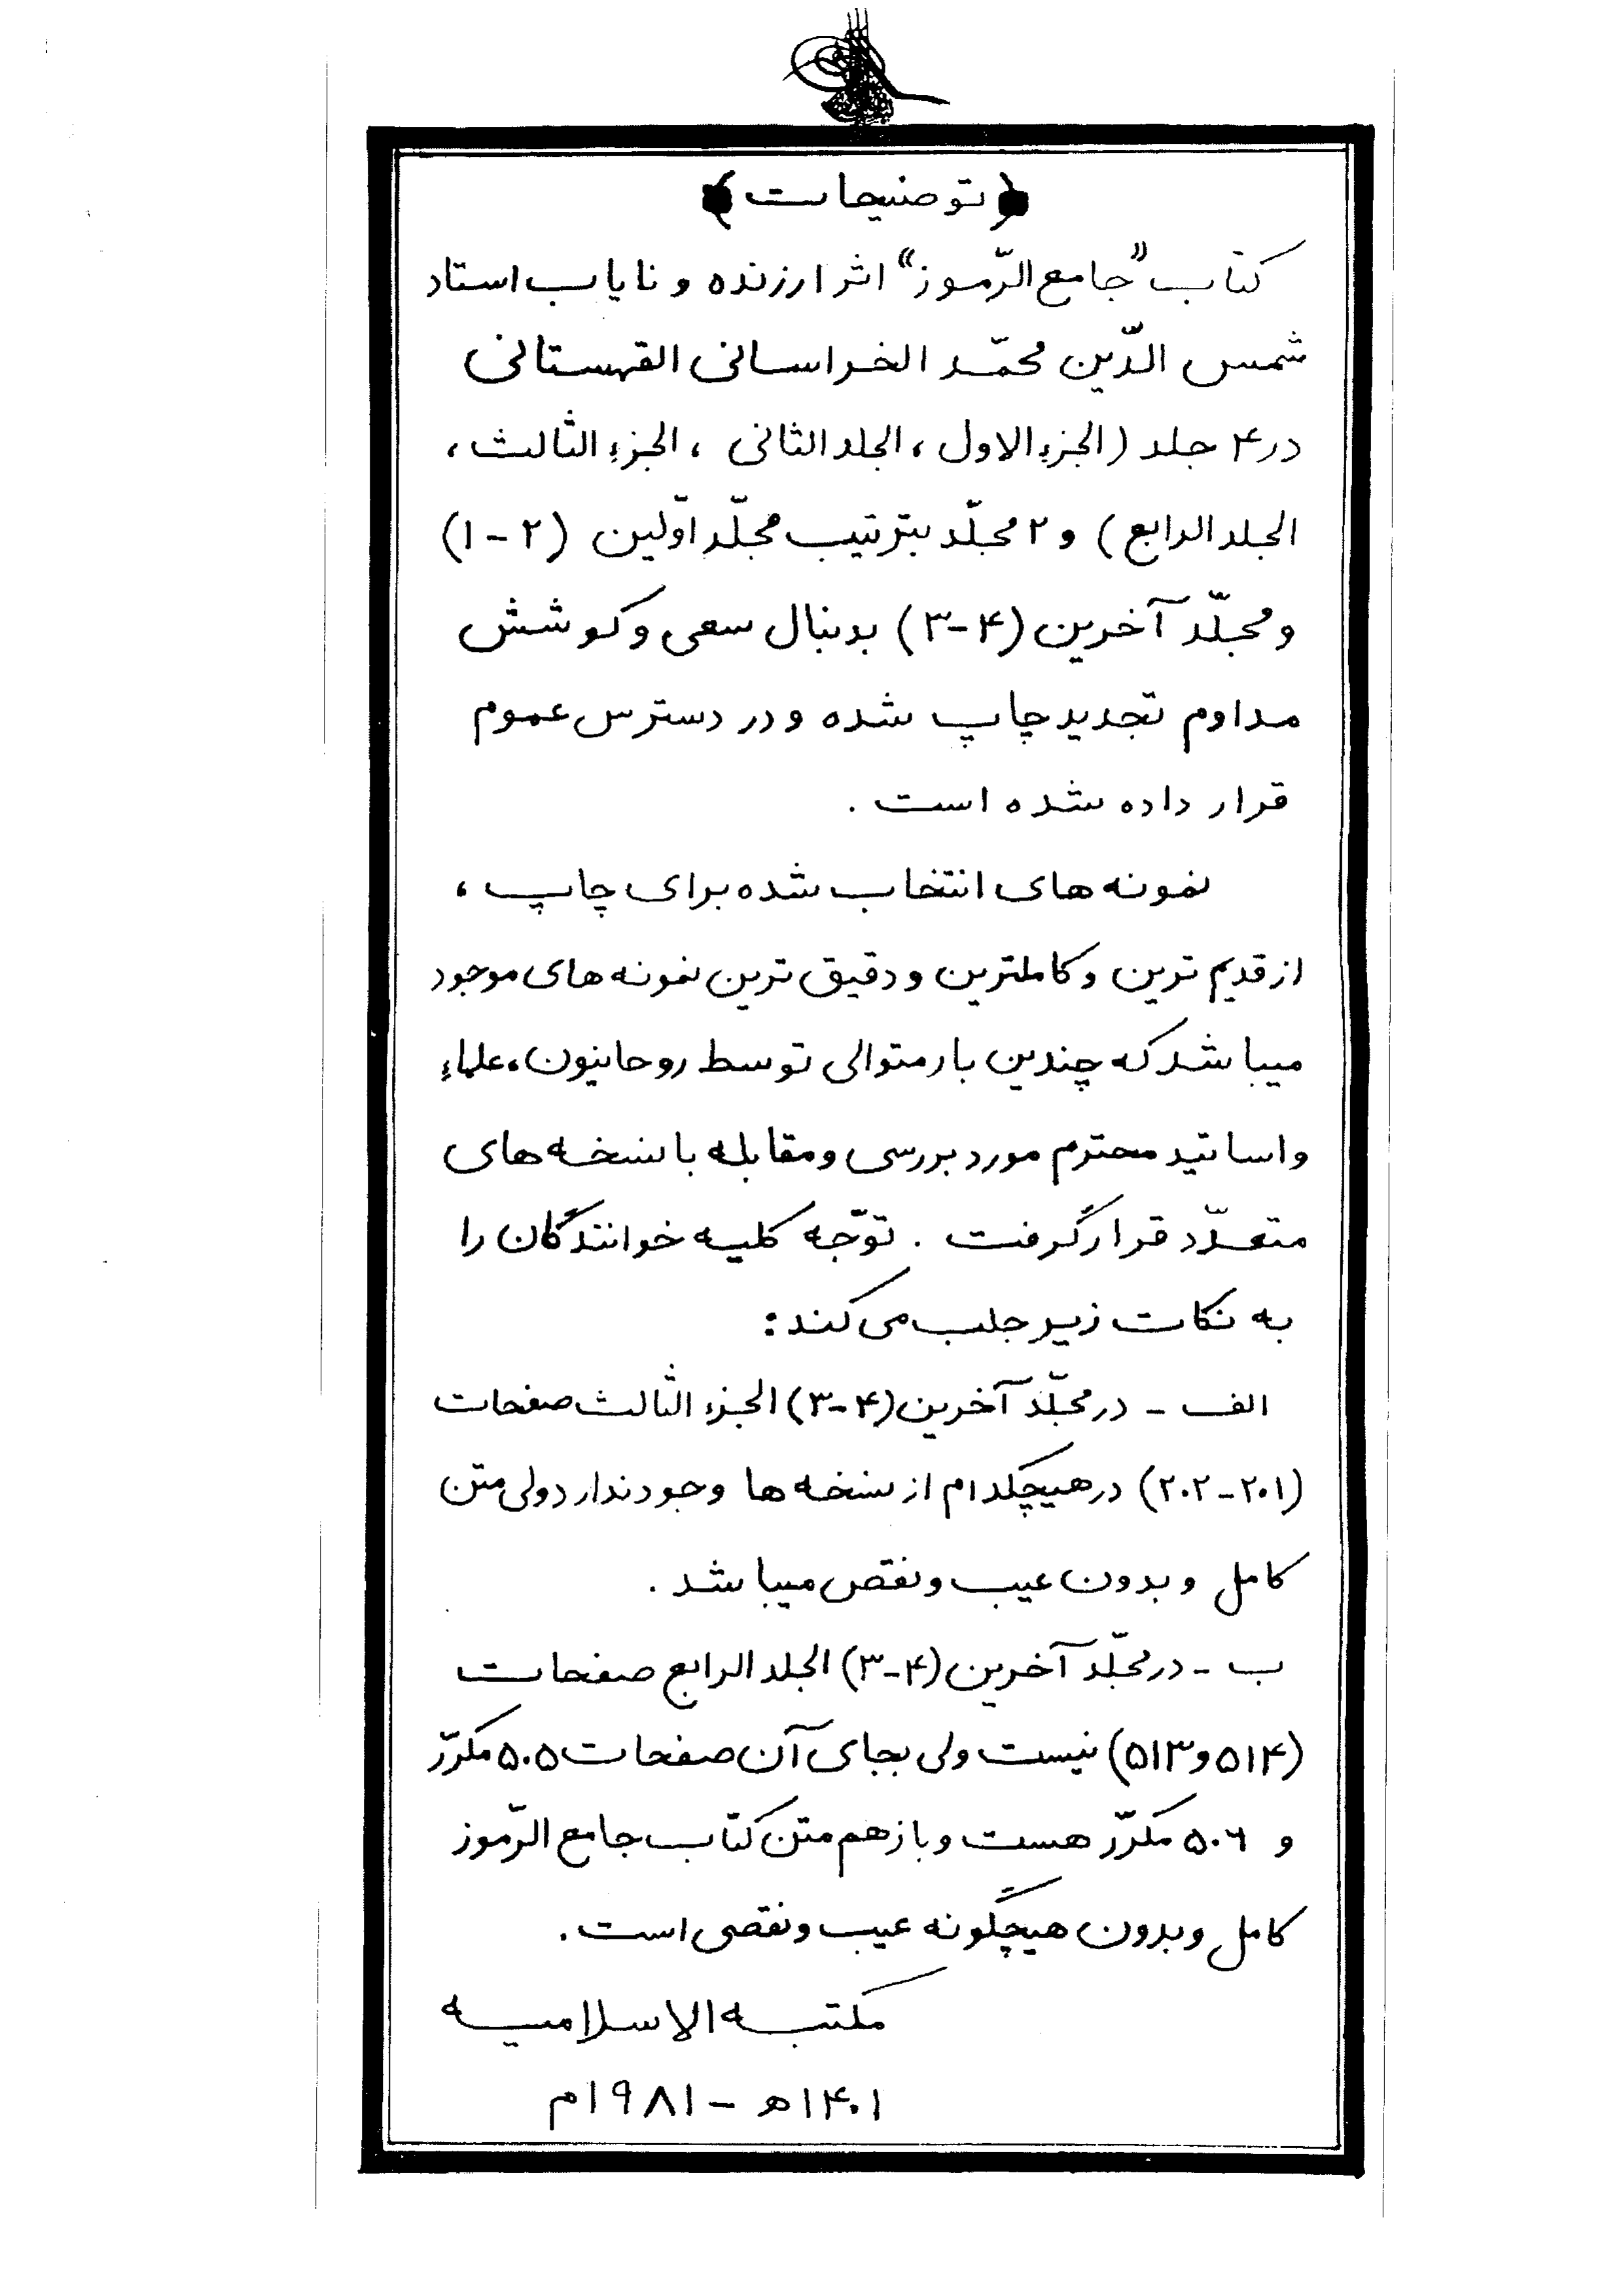 ﴿توضیحات﴾
کتاب "جامع الرّموز" اثر ارزنده و نایاب استاد
شمس الدّین محمّد الخراسانی القهستانی
در ۴ جلد (الجزء الاول، الجلد الثانی، الجزء الثالث،
الجلد الرابع) و ۲ مجلّد بترتیب مجلّد اوّلین (۲-۱)
و مجلّد آخرین (۴-۳) بدنبال سعی و کوشش
مداوم تجدید چاپ شده و در دسترس عموم
قرار داده شده است.
نمونه های انتخاب شده برای چاپ،
از قدیم ترین و کاملترین و دقیق ترین نمونه های موجود
میباشد که چندین بار متوالی توسط روحانیون، علماء
و اساتید محترم مورد بررسی و مقابله با نسخه های
متعدّد قرار گرفت. توّجه کلیه خوانندگان را
به نکات زیر جلب می کند:
الف - در مجلّد آخرین (۴-۳) الجزء الثالث صفحات
(۲۰۱-۲۰۲) در هیچکدام از نسخه ها وجود ندارد ولی متن
کامل و بدون عیب و نقص میباشد.
ب - در مجلّد آخرین (۴-۳) الجلد الرابع صفحات
(۵۱۴ و ۵۱۳) نیست ولی بجای آن صفحات ۵۰۵ مکرّر
و ۵۰۶ مکرّر هست و باز هم متن کتاب جامع الرّموز
کامل و بدون هیچگونه عیب و نقصی است.
مکتبه الاسلامیه
۱۴۰۱ه - ۱۹۸۱م